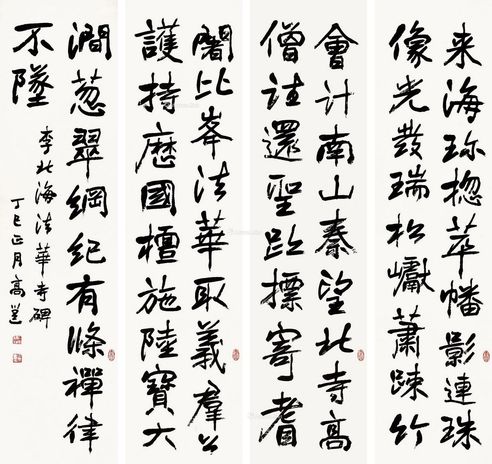 来海珎揔萃幡影連珠
像光發瑞松巘蕭踈竹
會計南山秦望北寺高
僧往還聖趾摽寄耆
闍比峯法華取義羣公
護持歷國檀施陸寶大
澗蔥翠綱紀有條禪律
不墜
李北海法華寺碑
丁巳正月高邕